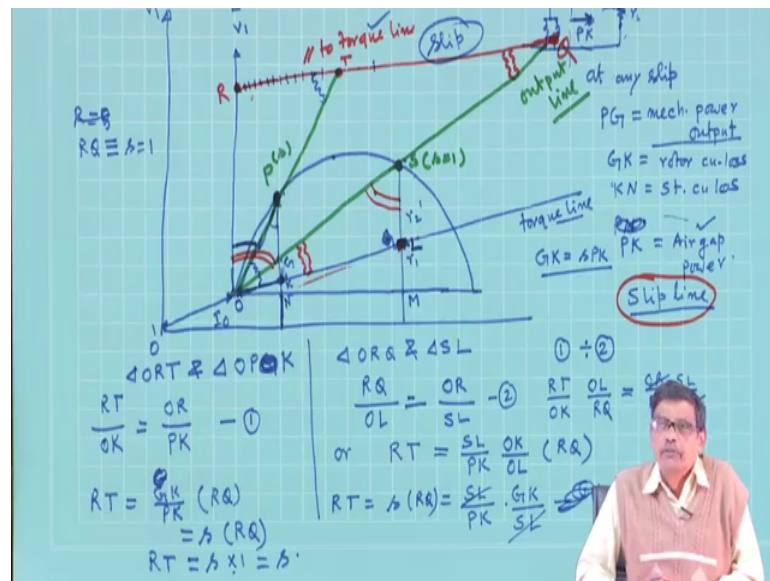 V1
// to torque line
slip
PK
r1
R
T
Q
output line
at any slip
PG = mech. power output
GK = rotor cu. loss
KN = st. cu loss
PK = Air gap power.
GK = sPK
Slip line
RQ ≡ s=1
P(s)
S (s=1)
r2'
torque line
L
r1
G
K
N
M
O
I0
O
△ORT & △OPK
RT/OK = OR/PK - ①
RT = GK/PK (RQ)
= s (RQ)
RT = s x 1 = s.
△ORQ & △SL
RQ/OL = OR/SL - ②
① ÷ ②
RT/OK OL/RQ = OR SL
or RT = SL/PK OK/OL (RQ)
RT = s (RQ) = SL/PK . GK/SL